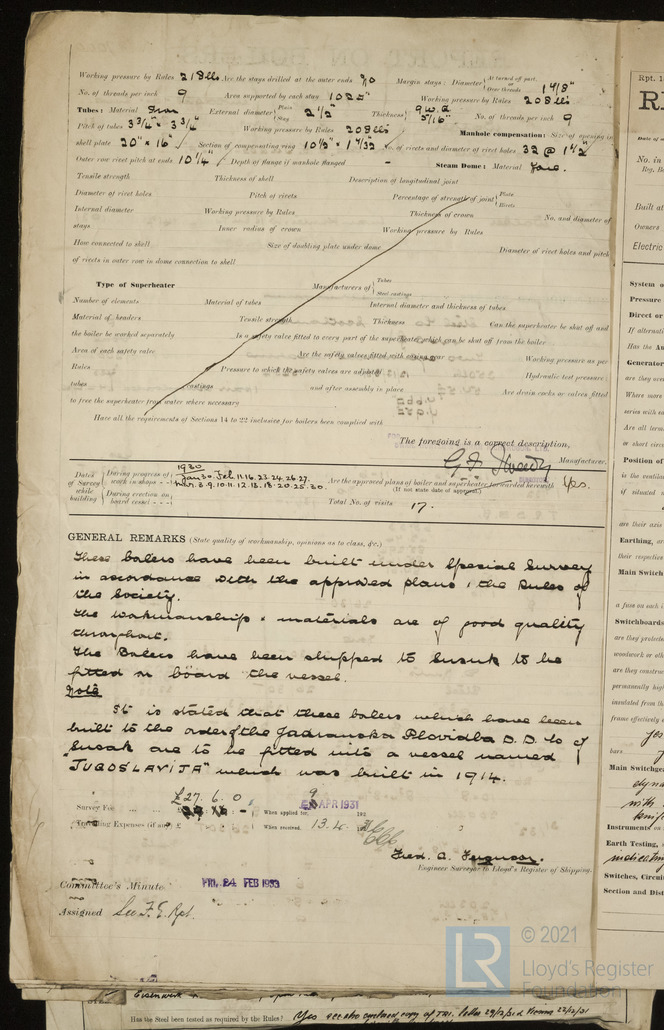 Working pressure by Rules 218 lbs Are the stays drilled at the outer ends No Margin stays: Diameter { At turned off part, or Over threads 1 7/8"
No. of threads per inch 9 Area supported by each stay Working pressure by Rules 208 lbs
Tubes: Material Iron External diameter { Plain Stay 2 1/2" Thickness { 9 W.G. 5/16" No. of threads per inch 9
Pitch of tubes 3 3/4" × 3 3/4" Working pressure by Rules 208 lbs Manhole compensation: Size of opening in
shell plate 20" × 16" Section of compensating ring 10 1/2" × 1 7/32" No. of rivets and diameter of rivet holes 32 @ 1 1/2"
Outer row rivet pitch at ends 10 1/4" Depth of flange if manhole flanged - Steam Dome: Material None.
Tensile strength Thickness of shell Description of longitudinal joint
Diameter of rivet holes Pitch of rivets Percentage of strength of joint { Plate Rivets
Internal diameter Working pressure by Rules Thickness of crown No. and diameter of
stays Inner radius of crown Working pressure by Rules
How connected to shell Size of doubling plate under dome Diameter of rivet holes and pitch
of rivets in outer row in dome connection to shell
Type of Superheater Manufacturers of { Tubes Steel castings
Number of elements Material of tubes Internal diameter and thickness of tubes
Material of headers Tensile strength Thickness Can the superheater be shut off and
the boiler be worked separately Is a safety valve fitted to every part of the superheater which can be shut off from the boiler
Area of each safety valve Are the safety valves fitted with easing gear Working pressure as per
Rules Pressure to which the safety valves are adjusted Hydraulic test pressure:
tubes castings and after assembly in place Are drain cocks or valves fitted
to free the superheater from water where necessary
Have all the requirements of Sections 14 to 22 inclusive for boilers been complied with
The foregoing is a correct description,
Manufacturer.
Dates of Survey while building { During progress of work in shops - - 1930 Jan 30. Feb 11.16.23.24.26.27. Mar. 3.9.10.11.12.13.18.20.25.30.
During erection on board vessel - - -
Are the approved plans of boiler and superheater forwarded herewith Yes.
(If not state date of approval.)
Total No. of visits 17.
GENERAL REMARKS (State quality of workmanship, opinions as to class, &c.)
These boilers have been built under Special Survey
in accordance with the approved plans & the Rules of
the Society.
The workmanship & materials are of good quality
throughout.
The Boilers have been shipped to Susak to be
fitted on board the vessel.
Note
It is stated that these boilers which have been
built to the order of the Jadranska Plovidba D.D. Co of
Susak are to be fitted into a vessel named
"JUGOSLAVIJA" which was built in 1914.
£27. 6. 0
Survey Fee ... ... £ When applied for, 9 APR 1931
Travelling Expenses (if any) £ When received, 13.4. 31
Fred. A. Ferguson.
Engineer Surveyor to Lloyd's Register of Shipping.
Committee's Minute FRI. 24 FEB 1933
Assigned See F.E. Rpt.
© 2021
Lloyd's Register
Foundation
Has the Steel been tested as required by the Rules? Yes
Rpt. 1
Date of
No. in
Reg. B
Built at
Owners
Electric
System o
Pressure
Direct or
If alternati
Has the Au
Generator
are they ove
Where more
series with
Are all term
or short circ
Position of
is the ventila
if situated
are their axis
Earthing, ar
their respectiv
Main Switch
a fuse on each
Switchboards
are they protecte
woodwork or oth
are they construc
permanently high
insulated from th
frame effectively
Yes
bars
Main Switchgea
dyna
with
Instruments on
Earth Testing,
indicating
Switches, Circui
Section and Dist